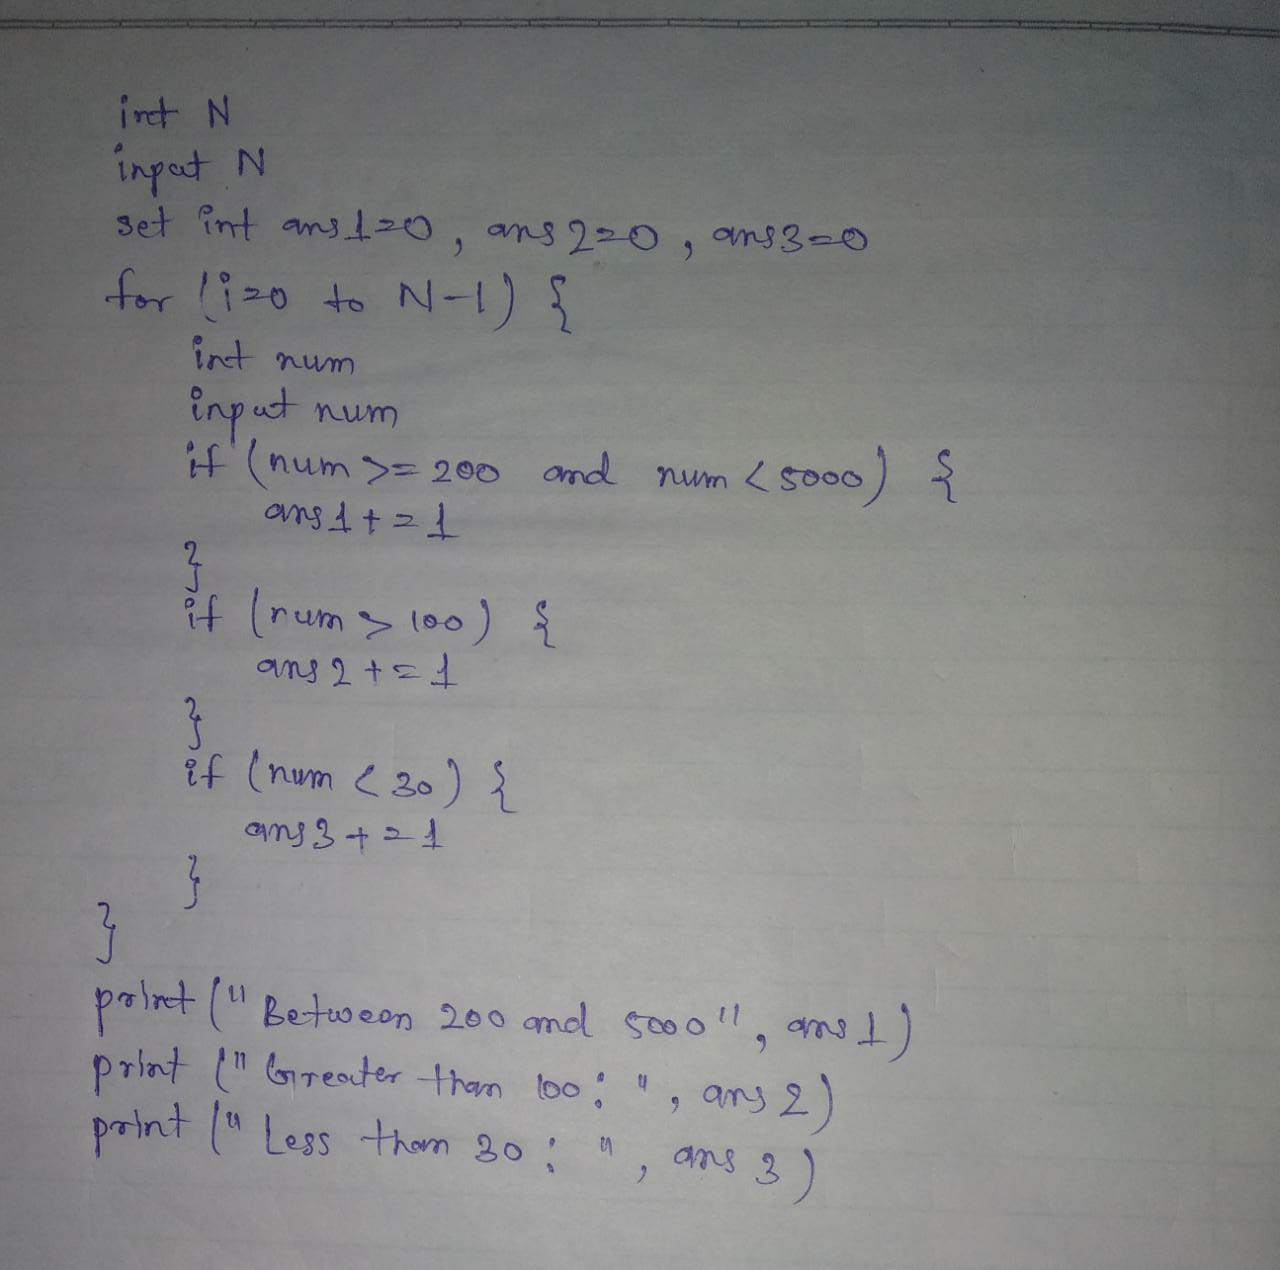 int N
input N
set int ans1=0, ans2=0, ans3=0
for (i=0 to N-1) {
int num
input num
if (num >= 200 and num < 5000) {
ans1 += 1
}
if (num > 100) {
ans2 += 1
}
if (num < 30) {
ans3 += 1
}
}
print ("Between 200 and 5000", ans1)
print ("Greater than 100: ", ans2)
print ("Less than 30: ", ans3)